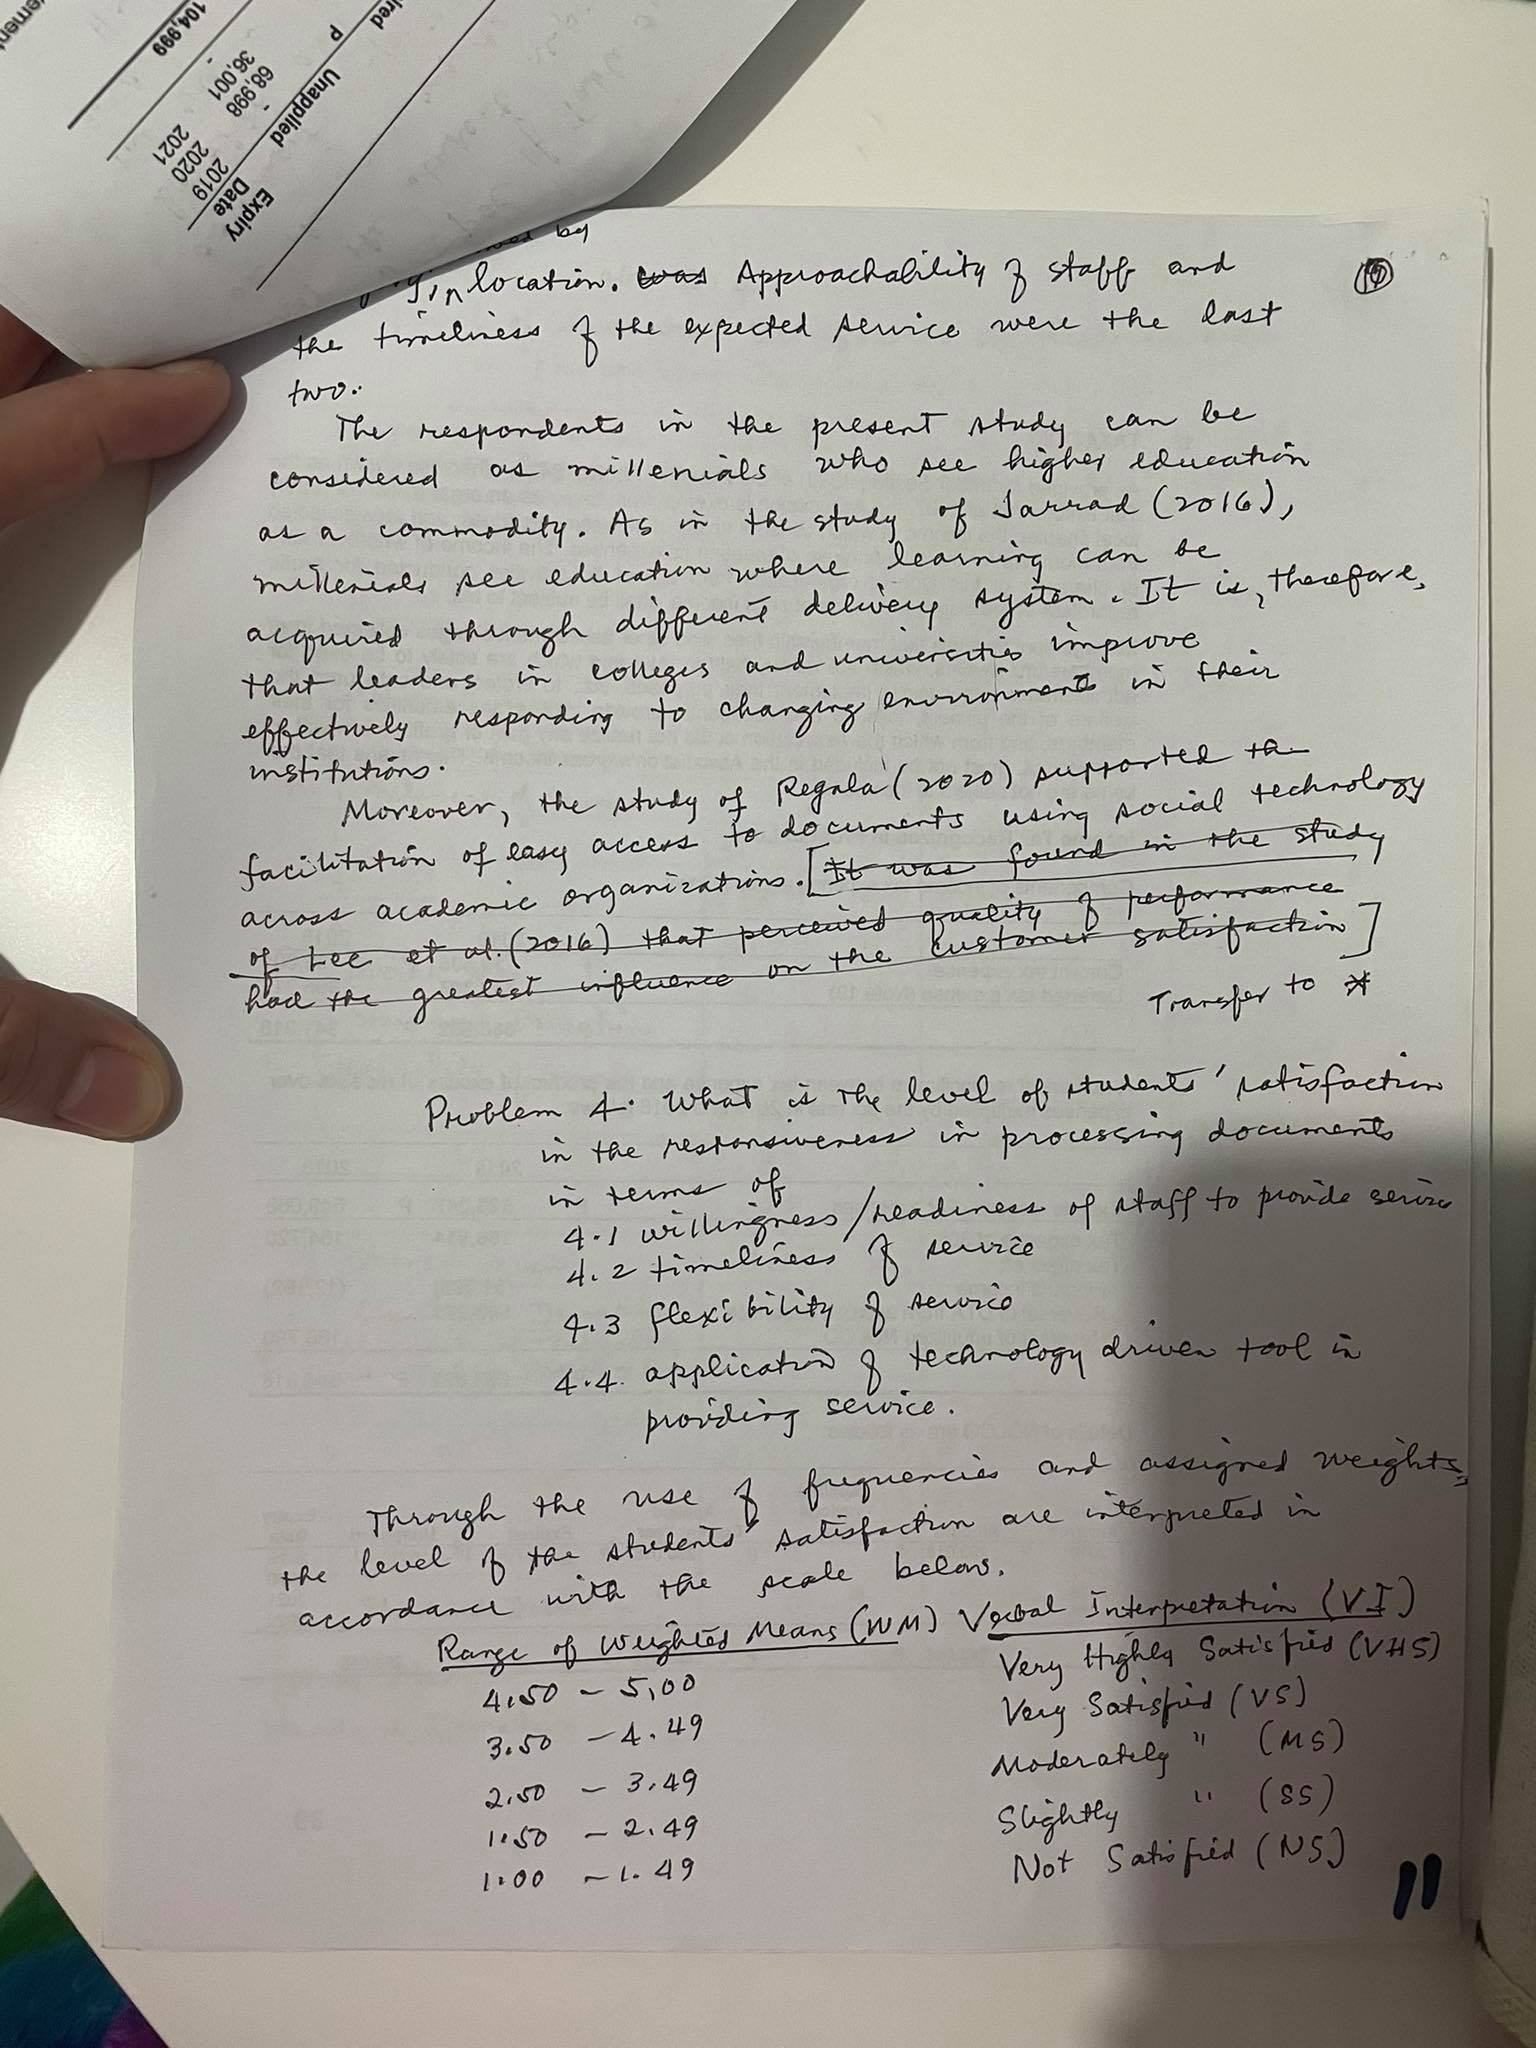 104,999
P
Unapplied
36,001
68,998
-
-
2021
2020
2019
Date
Expiry
by
location. was Approachability of staff and
19
the timeliness of the expected service were the last
two.
The respondents in the present study can be
considered as millenials who see higher education
as a commodity. As in the study of Jarrad (2016),
millenials see education where learning can be
acquired through different delivery system. It is, therefore,
that leaders in colleges and universities improve
effectively responding to changing environments in their
institutions.
Moreover, the study of Regala (2020) supported the
facilitation of easy access to documents using social technology
across academic organizations. [It was found in the study
of Lee et al. (2016) that perceived quality of performance
had the greatest influence on the customer satisfaction]
Transfer to *
Problem 4. What is the level of students' satisfaction
in the responsiveness in processing documents
in terms of
4.1 willingness/readiness of staff to provide service
4.2 timeliness of service
4.3 flexibility of service
4.4. application of technology driven tool in
providing service.
Through the use of frequencies and assigned weights,
the level of the students' satisfaction are interpreted in
accordance with the scale below.
Range of Weighted Means (WM) Verbal Interpretation (VI)
4.50 - 5.00 Very Highly Satisfied (VHS)
3.50 - 4.49 Very Satisfied (VS)
2.50 - 3.49 Moderately " (MS)
1.50 - 2.49 Slightly " (SS)
1.00 - 1.49 Not Satisfied (NS)
11